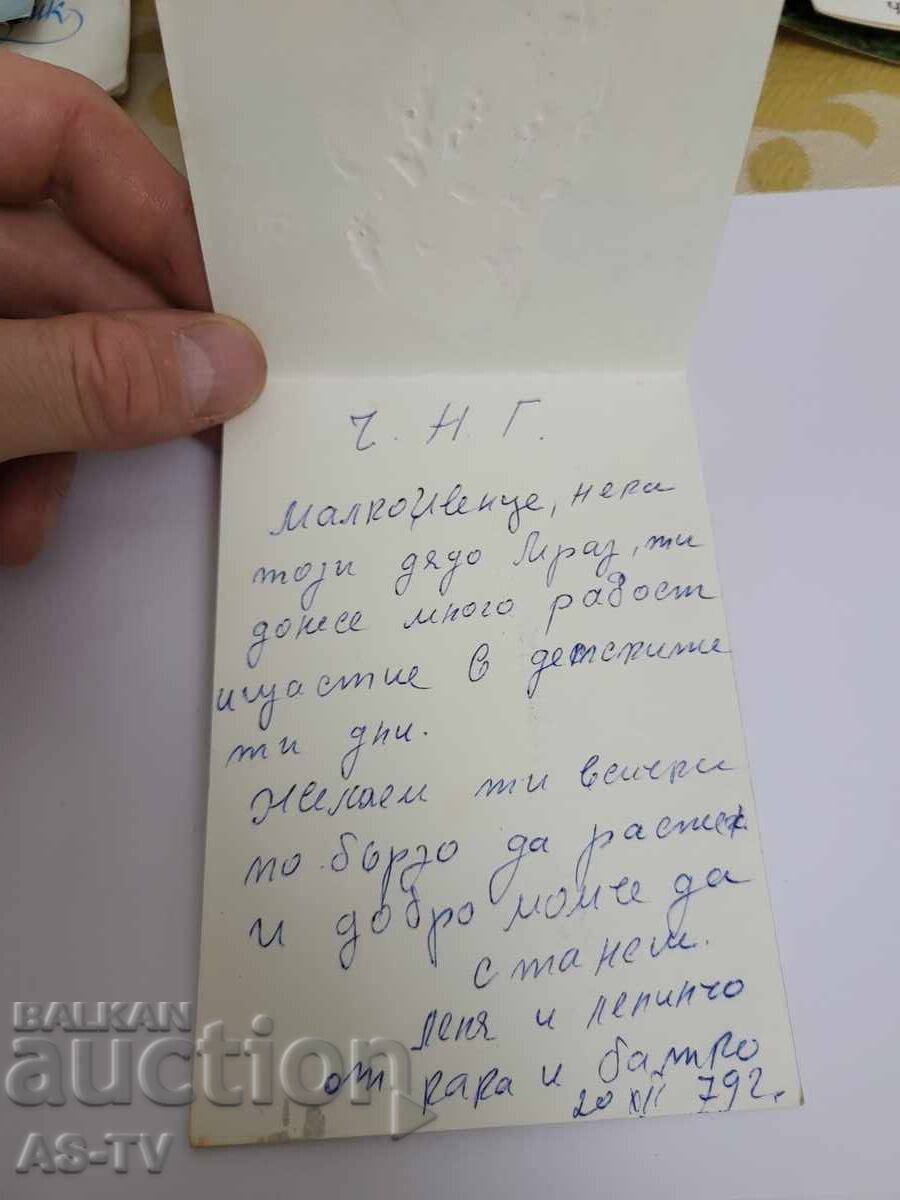 Ч. Н. Г.
Малко Ивенце, нека
този дядо Мраз, ти
донесе много радост
и щастие в детските
ти дни.
Желаем ти всички
по бързо да растеж
и добро момче да
станеш.
Леня и Пепинчо
от кака и батко
20 XII 79 г.
BALKAN
auction
AS-TV